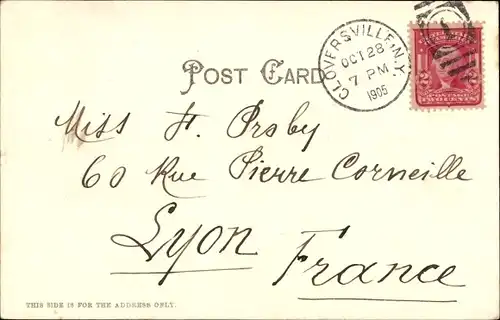 POST CARD
GLOVERSVILLE, N.Y.
OCT 28
7 PM
1905
2 2
POSTAGE
TWO CENTS
Miss F. Prsby
60 Rue Pierre Corneille
Lyon
France
THIS SIDE IS FOR THE ADDRESS ONLY.